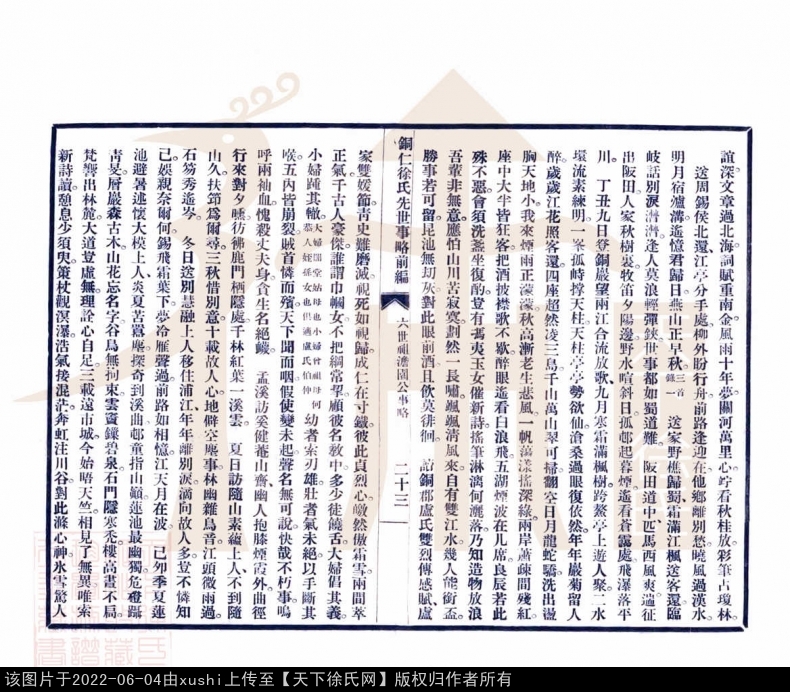 誼深文章過北海詞賦重南金風雨十年夢關河萬里心竚看秋桂放彩筆占瓊林
送周錫侯北還江亭分手處柳外盼行舟前路逢迎在他鄉離別愁曉風過漢水
明月宿瀘溝遙憶君歸日燕山正早秋三首錄一 送家野樵歸蜀霜滿江楓送客還臨
岐話別淚潸潸逢人莫浪輕彈鋏世事都如蜀道難 阪田道中匹馬西風爽遄征
出阪田人家秋樹裏牧笛夕陽邊野水喧斜日孤邨起暮煙遙看蒼靄處飛瀑落平
川 丁丑九日登銅巖望兩江合流放歌九月寒霜滿楓樹跨鰲亭上遊人聚二水
環流素練明一峯孤峙撐天柱天柱亭亭勢欲仙滄桑過眼復依然年年嚴菊留人
醉歲歲江花照客還四座超然凌三島千山萬山翠可掃翻空日月龍蛇驕洗出盪
胸天地小我來煙雨正濛濛秋高漸老生悲風一帆蕩漾搖深綠兩岸蕭疎間殘紅
座中大半皆狂客把酒披襟歌不歇醉眼遙看白浪飛五湖煙波在几席良辰若此
殊不惡會須洗盞坐復酌豈有馮夷玉女催新詩搖筆淋漓何灑落乃知造物放浪
吾輩非無意應怕山川苦寂寞劃然一長嘯颯颯清風來自有雙江水幾人能銜盃
勝事若可留昆池無劫灰對此眼前酒且飲莫徘徊 詣銅郡盧氏雙烈傳感賦盧
銅仁徐氏先世事略前編
六世祖澹園公事略
二十三
家雙媛節青史難磨滅視死如視歸成仁在寸鐵彼此貞烈心皦然傲霜雪兩間萃
正氣千古人豪傑誰謂巾幗女不把綱常挈顧彼名教中多少徒饒舌大婦倡其義
小婦踵其轍大婦閻堂姑母也小婦曾祖母何恭人姪孫女也俱適盧氏伯仲幼者索刃雄壯者氣未絕以手斷其
喉五內皆崩裂賊首憐而殯天下聞而咽假使變未起聲名無可說快哉不朽事嗚
呼兩袖血愧殺丈夫身貪生名絕巘 孟溪訪奚健菴山齋幽人抱膝煙霞外曲徑
行來對夕曛彷彿鹿門栖隱處千林紅葉一溪雲 夏日訪隨山素蘊上人不到隨
山久扶笻為爾尋三秋惜別意十載故人心地僻空塵事林幽雜鳥音江頭微雨過
石筍秀遙岑 冬日送別慧融上人移住浦江年年離別淚滿向故人多豈不憐知
己娛親奈爾何錫飛霜葉下夢冷雁聲過前路如相憶江天月在波 己夘季夏蓮
池避暑述懷大模上人炎夏苦囂塵探奇到溪曲邨童指山巔蓮池最幽獨危磴躋
青旻層嚴森古木山花忘名字谷鳥無拘束雲賓鑠碧泉石門隱寒禿樓高畫不局
梵響出林麓大道豈虛無理詮心自足三載遠市城今始晤天竺相見了無異唯索
新詩讀憩息少須臾策杖觀溟瀑浩氣接混茫奔虹注川谷對此滌心神氷雪驚人
该图片于2022-06-04由xushi上传至【天下徐氏网】版权归作者所有